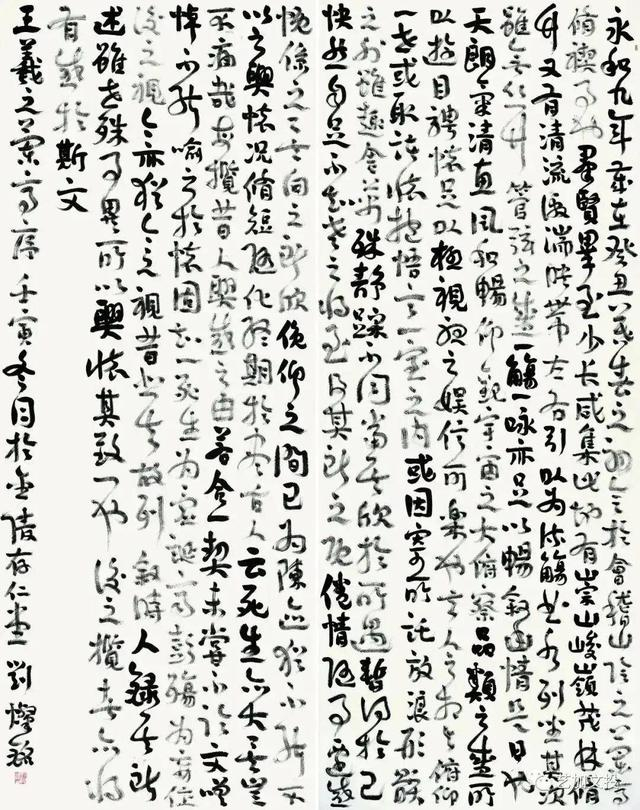 永和九年歲在癸丑暮春之初會於會稽山陰之蘭亭
脩禊事也群賢畢至少長咸集此地有崇山峻嶺茂林脩
竹又有清流激湍映帶左右引以為流觴曲水列坐其次
雖無絲竹管弦之盛一觴一詠亦足以暢敘幽情是日也
天朗氣清惠風和暢仰觀宇宙之大俯察品類之盛所
以遊目騁懷足以極視聽之娛信可樂也夫人之相與俯仰
一世或取諸懷抱悟言一室之內或因寄所託放浪形骸
之外雖趣舍萬殊靜躁不同當其欣於所遇暫得於己
快然自足不知老之將至及其所之既倦情隨事遷感
慨係之矣向之所欣俛仰之間已為陳迹猶不能不
以之興懷況脩短隨化終期於盡古人云死生亦大矣豈
不痛哉每攬昔人興感之由若合一契未嘗不臨文嗟
悼不能喻之於懷固知一死生為虛誕齊彭殤為妄作
後之視今亦猶今之視昔悲夫故列敘時人錄其所
述雖世殊事異所以興懷其致一也後之攬者亦將
有感於斯文
王羲之蘭亭序壬寅冬月於金陵存仁堂劉燦銘